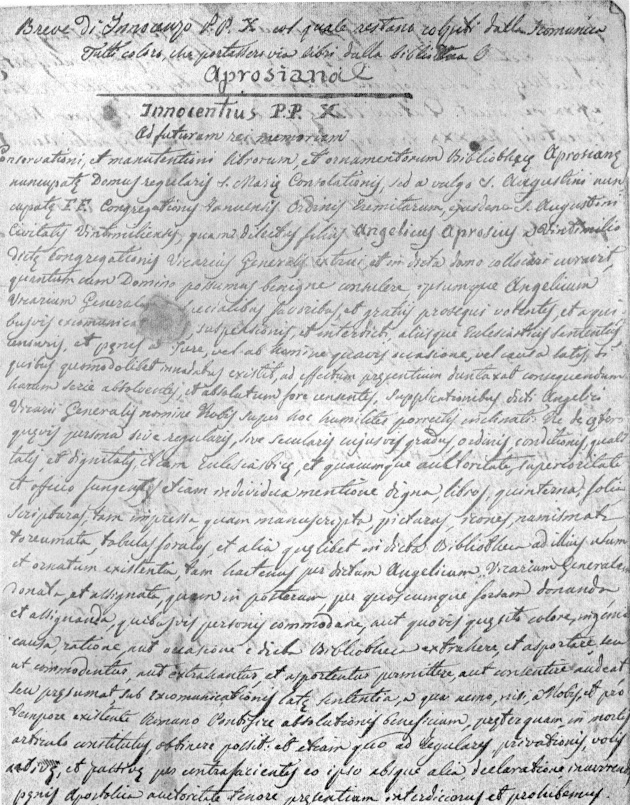 Breve di Innocenzo P.P. X col quale restano colpiti dalla scomunica
Tutti coloro, che portassero via libri dalla biblioteca
Aprosiana
Innocentius P.P. X.
Ad futuram rei memoriam
Conservationi, et manutentioni librorum, et ornamentorum Bibliothecę Aprosianę
nuncupatę Domus regularis S. Marię Consolationis, sed a vulgo S. Augustini nun
cupatę F.F. Congregationis Januensis Ordinis Eremitarum, ejusdem S. Augustini
Civitatis Vintimiliensis, quam dilectus filius Angelicus Aprosius a Vintimilio
dictę Congregationis Vicarius Generalis extrui, et in dicta domo collocari curavit,
quantum cum Domino possumus benigne consulere ipsumque Angelicum
Vicarium Generalem specialibus favoribus, et gratiis prosequi volentes, et a qui
busvis excomunica suspensionis, et interdicti, aliisque Ecclesiasticis sententiis
censuris, et pęnis a Jure, vel ab homine quavis occasione, vel causa latis, si
quibus quomodolibet innodatus existit, ad effectum pręsentium duntaxat consequendum
harum serie absolventes, et absolutum fore censentes, supplicationibus dicti Angelici
Vicarii Generalis nomine Nobis super hoc humiliter porrectis inclinati. Ne de cętero
quęvis persona sive regularis, sive secularis cujusvis gradus, ordinis conditionis, quali
tatis et dignitatis, etiam Ecclesiasticę, et quacumque auctoritate, superioritate
et officio fungentes etiam individua mentione digna libros, quinterna, folia
scripturas, tam impressa quam manuscripta picturas, icones, numismata
toreumata, tabulas forales, et alia quęlibet in dicta Bibliotheca ad illius usum
et ornatum existentia, tam hactenus per dictum Angelicum Vicarium Generalem
donata, et assignata, quam in posterum per quoscumque forsam donanda
et assignanda, quibusvis personis commodare, aut quovis quęsito colore, ingenio
causa ratione, aut occasione e dicta Bibliotheca extrahere, et asportare, seu
ut commodentur, aut extrahantur, et asportentur permittere, aut consentire audeat
seu pręsumat sub excomunicationis latę sententia, a qua nemo, nisi, a Nobis, et pro
tempore existente Romano Pontifice absolutionis beneficium, pręterquam in mortis
articulo constitutus, obtinere possit: et etiam quo ad regulares privationis, vocis
activę, et passivę per contrafacientes eo ipso absque alia declaratione incurrend
pęnis Apostolica auctoritate tenore pręsentium interdicimus et prohibemus.